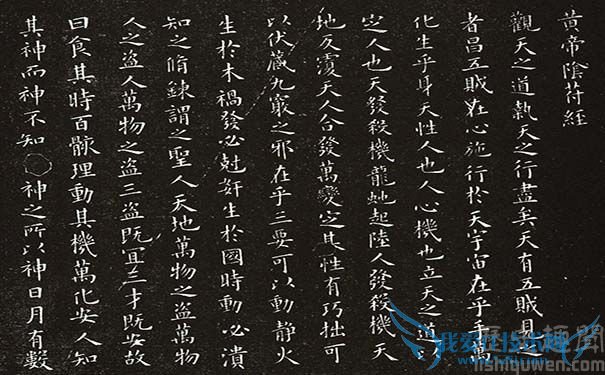 黃帝陰苻經
觀天之道執天之行盡矣天有五賊見之
者昌五賊在心施行於天宇宙在乎手萬
化生乎身天性人也人心機也立天之道以
定人也天發殺機龍虵起陸人發殺機天
地反覆天人合發萬變定其性有巧拙可
以伏藏九竅之邪在乎三要可以動靜火
生於木禍發必尅奸生於國時動必潰
知之脩鍊謂之聖人天地萬物之盜萬物
人之盜人萬物之盜三盜既冝三才既安故
曰食其時百骸理動其機萬化安人知
其神而神不知○神之所以神日月有數
lishiquwen.com